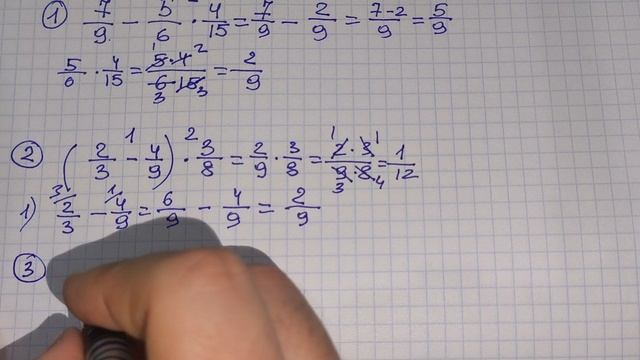 ① 7/9 - 5/6 · 4/15 = 7/9 - 2/9 = 7-2/9 = 5/9
5/6 · 4/15 = 5·4/6·15 = 2/9
② (2/3 - 4/9) · 3/8 = 2/9 · 3/8 = 2·3/9·8 = 1/12
1) 2/3 - 4/9 = 6/9 - 4/9 = 2/9
③